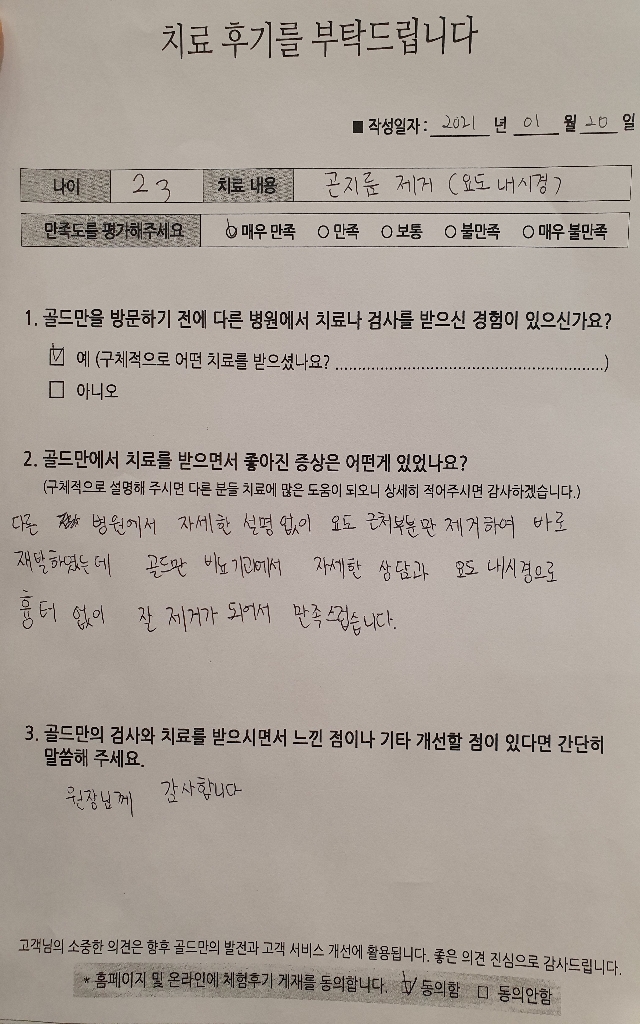 치료 후기를 부탁드립니다
■ 작성일자 : 2021 년 01 월 20 일
나이 23 치료 내용 곤지름 제거 (요도 내시경)
만족도를 평가해주세요 ○ 매우 만족 ○ 만족 ○ 보통 ○ 불만족 ○ 매우 불만족
1. 골드만을 방문하기 전에 다른 병원에서 치료나 검사를 받으신 경험이 있으신가요?
☑ 예 (구체적으로 어떤 치료를 받으셨나요? ........................................................)
☐ 아니오
2. 골드만에서 치료를 받으면서 좋아진 증상은 어떤게 있었나요?
(구체적으로 설명해 주시면 다른 분들 치료에 많은 도움이 되오니 상세히 적어주시면 감사하겠습니다.)
다른 병원에서 자세한 설명 없이 요도 근처부분만 제거하여 바로
재발하였는데 골드만 비뇨기과에서 자세한 상담과 요도 내시경으로
흉터 없이 잘 제거가 되어서 만족스럽습니다.
3. 골드만의 검사와 치료를 받으시면서 느낀 점이나 기타 개선할 점이 있다면 간단히
말씀해 주세요.
원장님께 감사합니다
고객님의 소중한 의견은 향후 골드만의 발전과 고객 서비스 개선에 활용됩니다. 좋은 의견 진심으로 감사드립니다.
* 홈페이지 및 온라인에 체험후기 게재를 동의합니다. ☑ 동의함 ☐ 동의안함